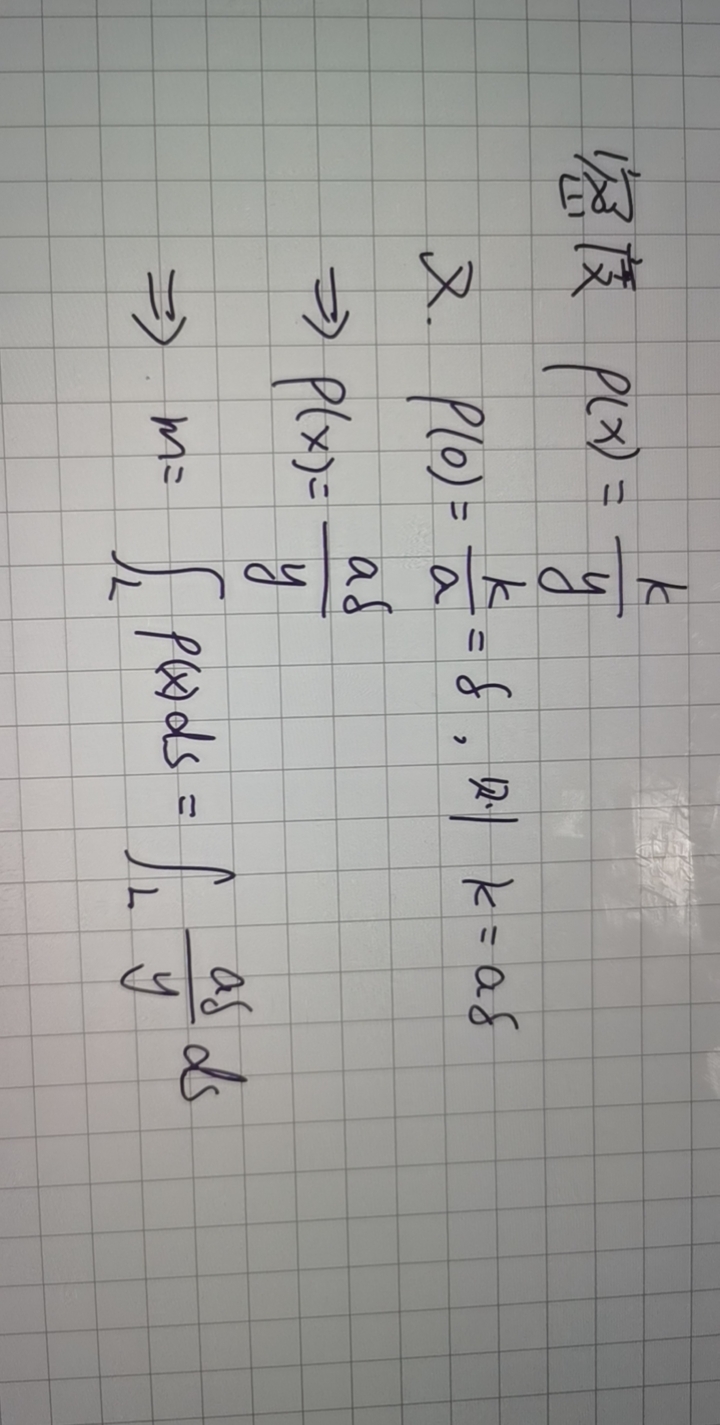 密度 ρ(x) = k/y
又. ρ(0) = k/a = δ , 则 k = aδ
⇒ ρ(x) = aδ/y
⇒ m = ∫_L ρ(x)ds = ∫_L aδ/y ds